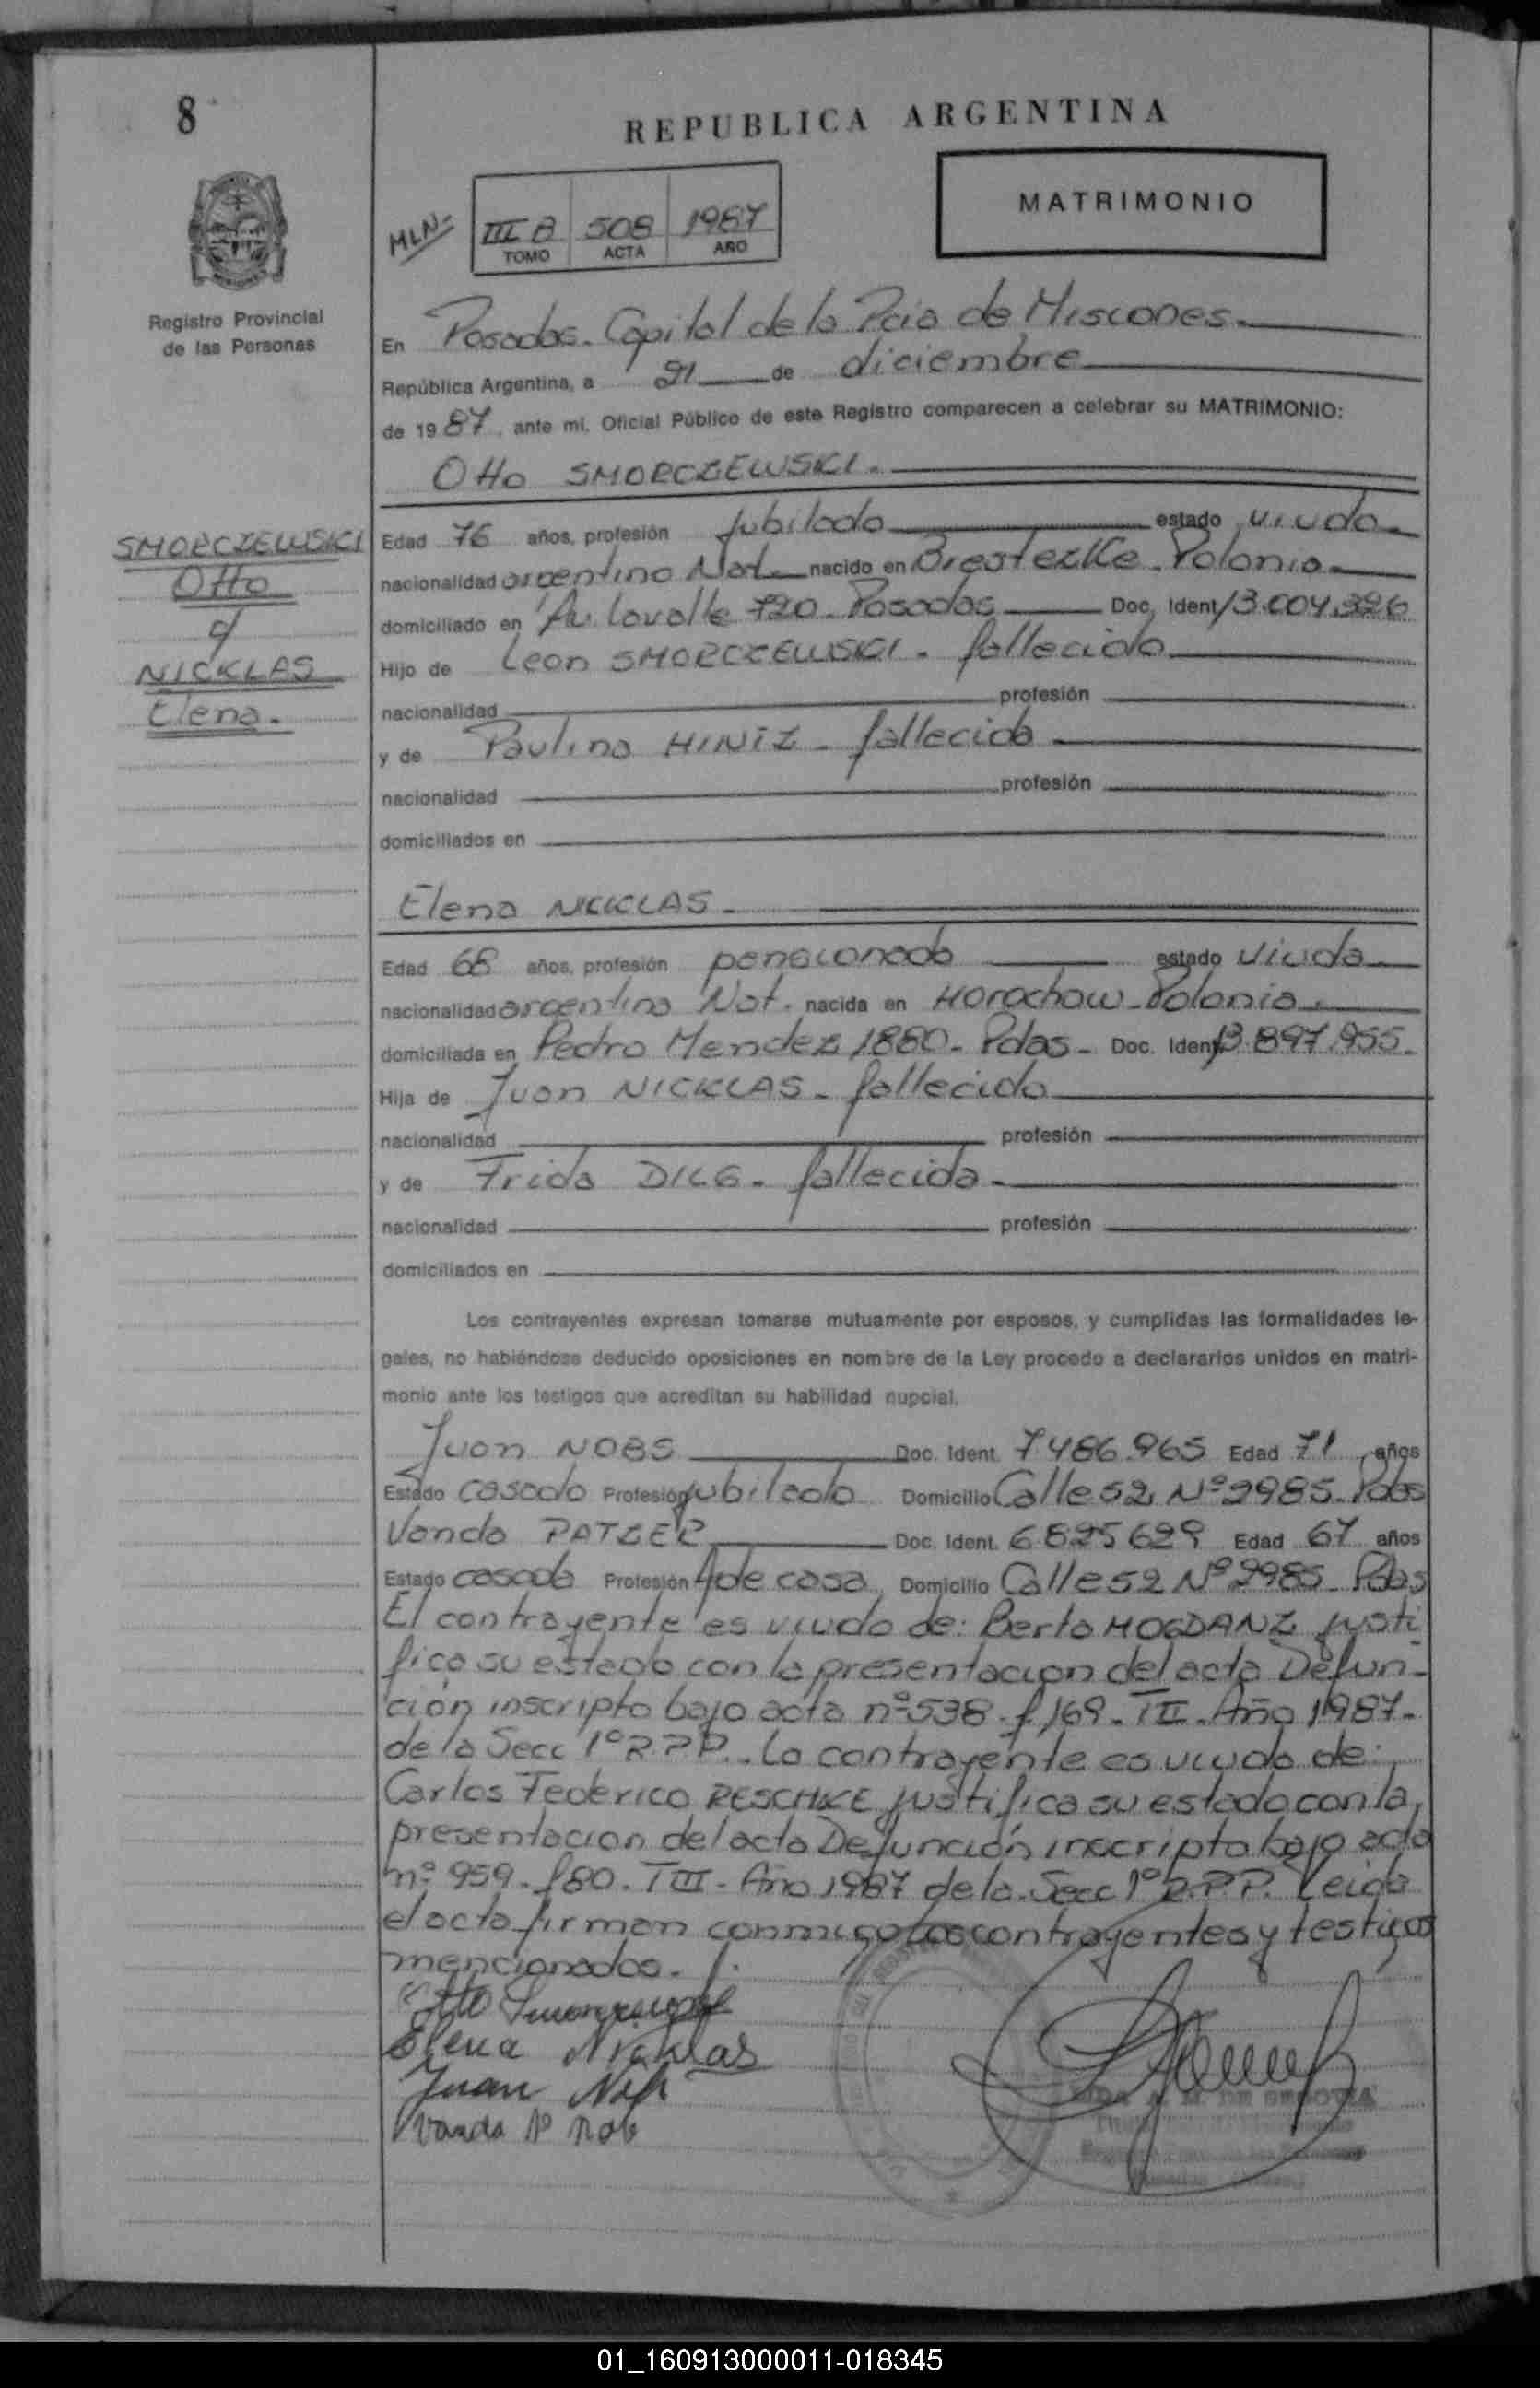 8
REPUBLICA ARGENTINA
MATRIMONIO
MLN-
III B 508 1987
TOMO ACTA AÑO
Registro Provincial
de las Personas
En Posadas. Capital de la Pcia de Misiones.
República Argentina, a 21 de diciembre
de 1987, ante mi, Oficial Público de este Registro comparecen a celebrar su MATRIMONIO:
Otto SMORCZEWSKI.
SMORCZEWSKI
Otto
c/
NICKLAS
Elena.
Edad 76 años, profesión jubilado estado viudo
nacionalidad argentino Nat. nacido en Polonia
domiciliado en Av. Lavalle 720. Posadas Doc. Ident 13.004.326
Hijo de Leon SMORCZEWSKI. fallecido
nacionalidad profesión
y de Paulina HINIZ. fallecida
nacionalidad profesión
domiciliados en
Elena NICKLAS.
Edad 68 años, profesión pensionada estado viuda
nacionalidad argentina Nat. nacida en Horochow-Polonia.
domiciliada en Pedro Mendez 1880- Pdas- Doc. Ident 13.897.955.
Hija de Juan NICKLAS. fallecido
nacionalidad profesión
y de Frida DILG. fallecida.
nacionalidad profesión
domiciliados en
Los contrayentes expresan tomarse mutuamente por esposos, y cumplidas las formalidades le-
gales, no habiéndose deducido oposiciones en nombre de la Ley procedo a declararlos unidos en matri-
monio ante los testigos que acreditan su habilidad nupcial.
Juan NOBS Doc. Ident. 7486.965 Edad 71 años
Estado casado Profesión jubilado Domicilio Calle 52 Nº 2985. Pdas
Vanda PATZER Doc. Ident. 6.825629 Edad 67 años
Estado casada Profesión A de casa Domicilio Calle 52 Nº 2985. Pdas
El contrayente es viudo de: Berta HOGDANZ justi
fica su estado con la presentacion del acta Defun-
ción inscripto bajo acta nº 538. f 169. TII. Año 1987.
de la Secc 1º R.P.P. La contrayente es viuda de:
Carlos Federico RESCHKE justifica su estado con la
presentacion del acta Defunción inscripto bajo acta
nº 959. f 80. TIII. Año 1987 de la Secc 1º R.P.P. Leida
el acta firman conmigo los contrayentes y testigos
mencionados.
Otto
Elena Nicklas
Juan
Vanda P
DE SEGOVIA
01_160913000011-018345